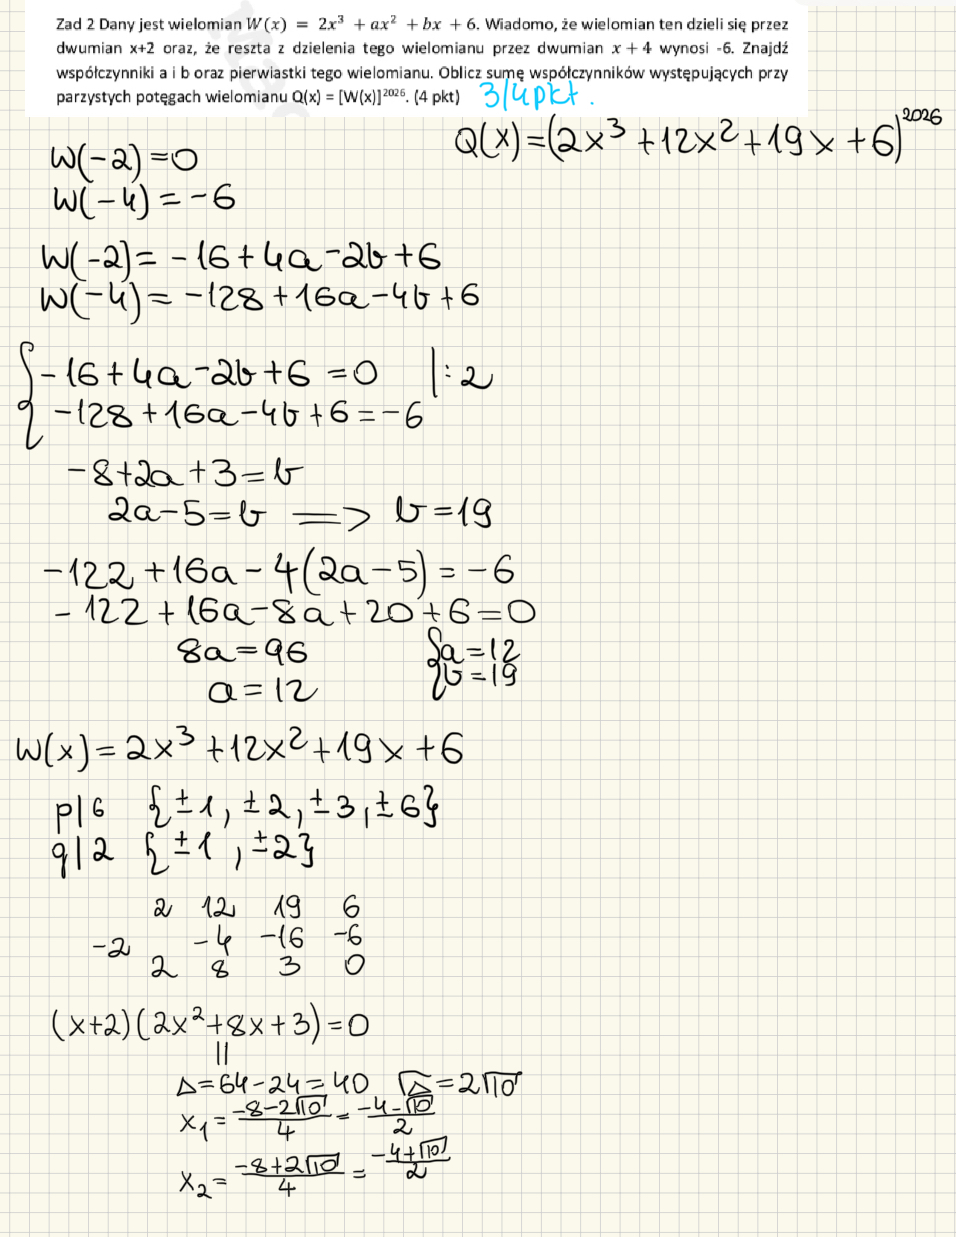 Zad 2 Dany jest wielomian W(x) = 2x³ + ax² + bx + 6. Wiadomo, że wielomian ten dzieli się przez
dwumian x+2 oraz, że reszta z dzielenia tego wielomianu przez dwumian x + 4 wynosi -6. Znajdź
współczynniki a i b oraz pierwiastki tego wielomianu. Oblicz sumę współczynników występujących przy
parzystych potęgach wielomianu Q(x) = [W(x)]²⁰²⁶. (4 pkt) 3/4pkt.
Q(x)=(2x³+12x²+19x+6)²⁰²⁶
W(-2)=0
W(-4)=-6
W(-2)=-16+4a-2b+6
W(-4)=-128+16a-4b+6
{-16+4a-2b+6=0 |:2
-128+16a-4b+6=-6
-8+2a+3=b
2a-5=b => b=19
-122+16a-4(2a-5)=-6
-122+16a-8a+20+6=0
8a=96 {a=12
a=12 b=19
W(x)=2x³+12x²+19x+6
p|6 {±1,±2,±3,±6}
q|2 {±1,±2}
2 12 19 6
-2 -4 -16 -6
2 8 3 0
(x+2)(2x²+8x+3)=0
||
Δ=64-24=40 √Δ=2√10
x₁=(-8-2√10)/4=(-4-√10)/2
x₂=(-8+2√10)/4=(-4+√10)/2